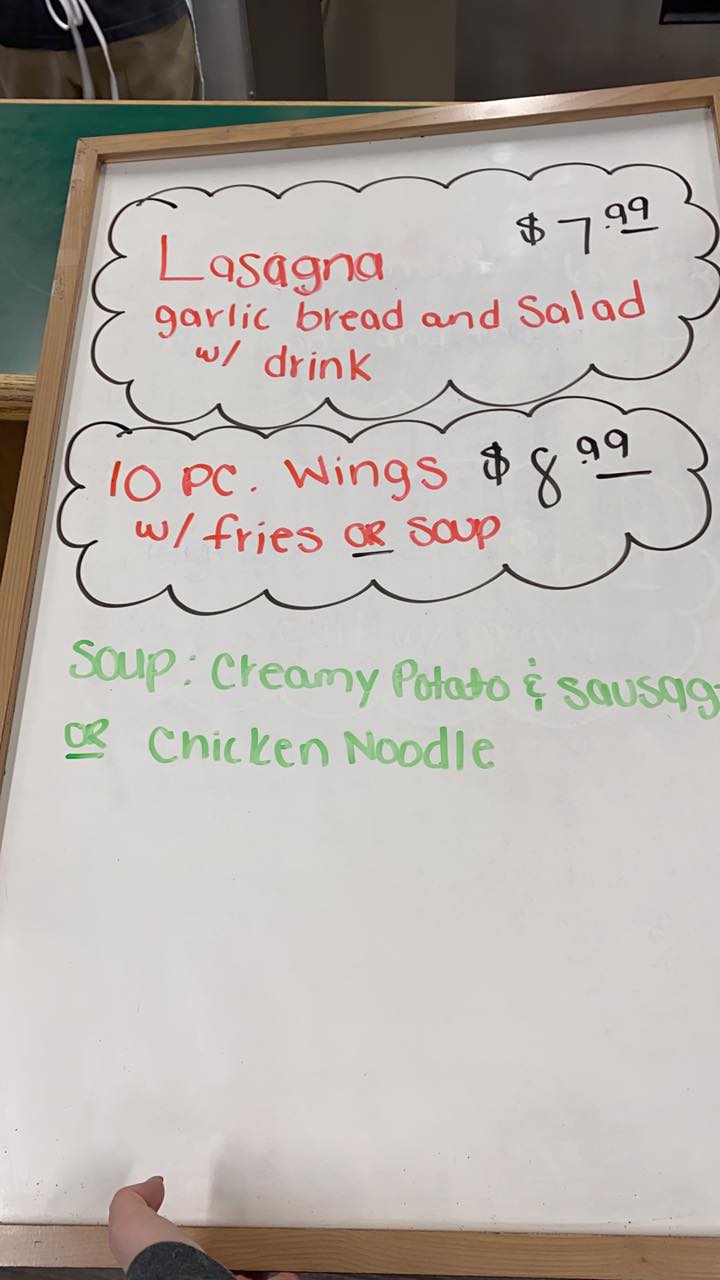 Lasagna $7.99
garlic bread and Salad
w/ drink
10 PC. Wings $8.99
w/ fries OR Soup
Soup: Creamy Potato & Sausag
OR Chicken Noodle